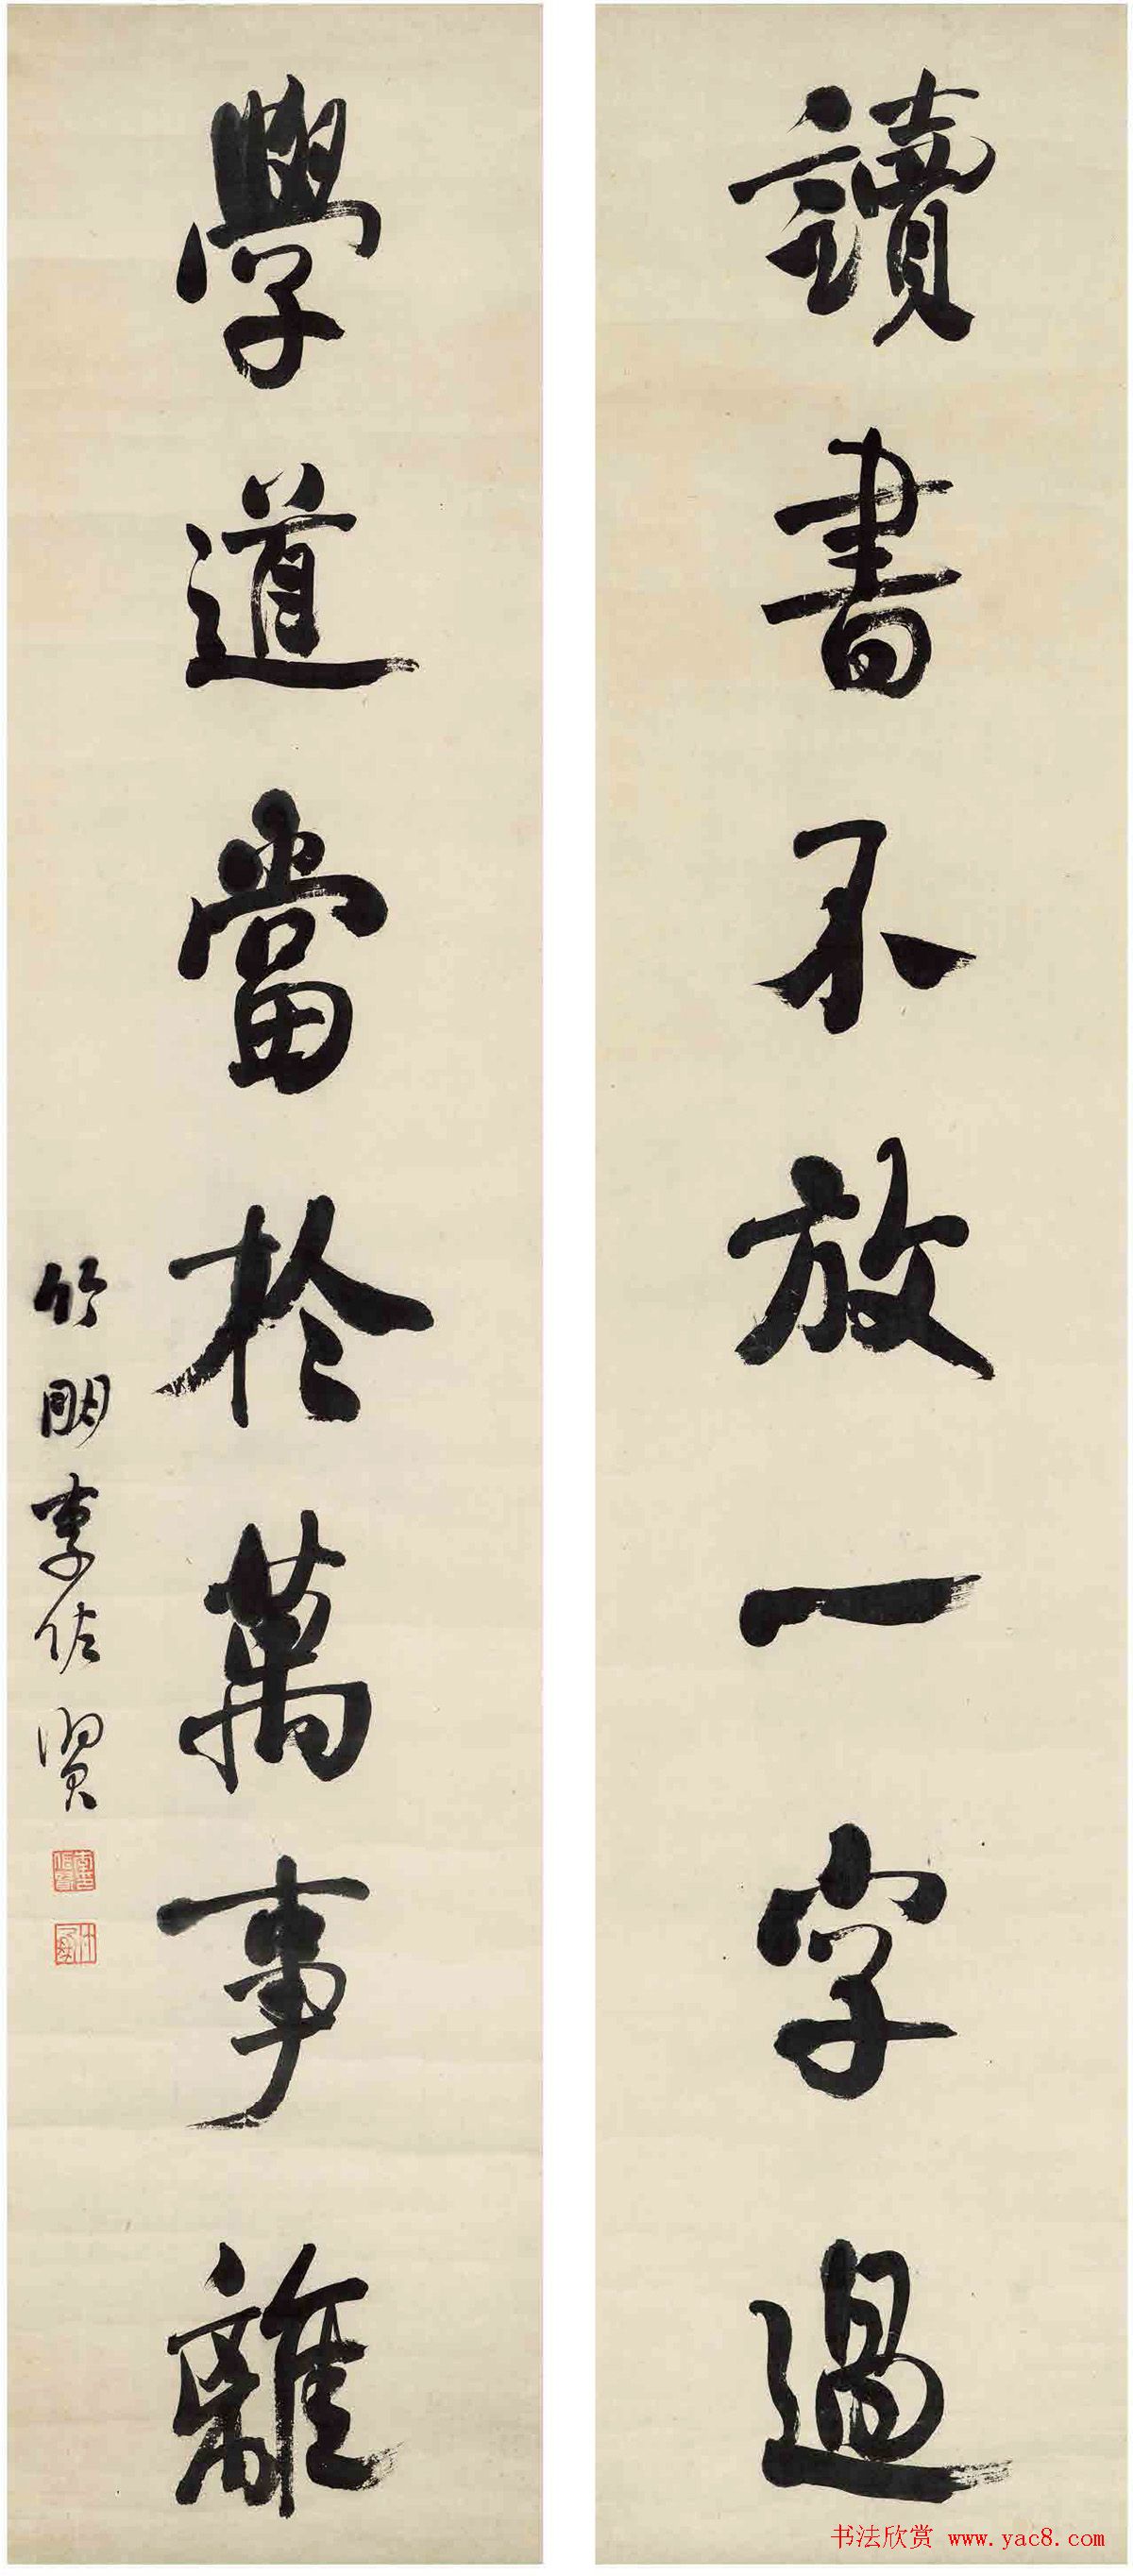 讀書不放一字過
學道當於萬事離
竹朋李佐賢
李佐賢印
竹朋
书法欣赏 www.yac8.com